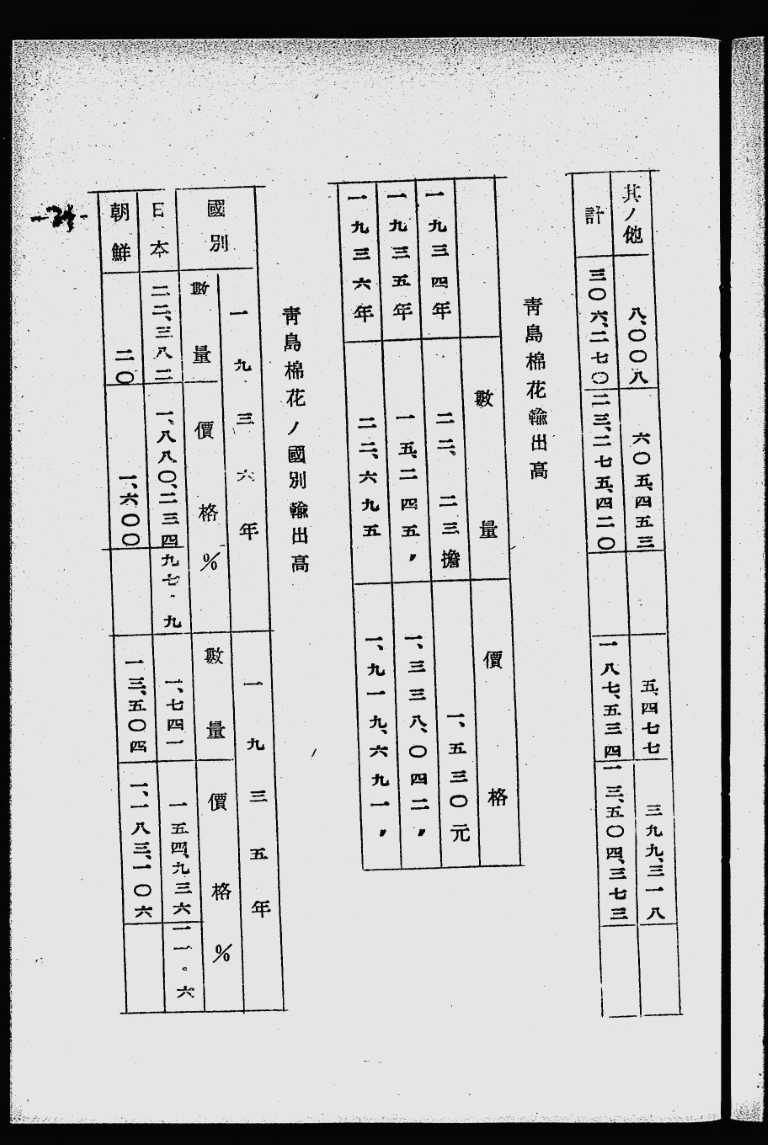 其ノ他 八、〇〇八 六〇五、四五三 五、四七七 三九九、三一八
計 三〇六、二七〇 二三、二七五、四二〇 一八七、五三四 一三、五〇四、三七三
靑島棉花輸出高
數量 價格
一九三四年 二二、二三擔 一、五三〇元
一九三五年 一五、二四五〃 一、三三八、〇四二〃
一九三六年 二二、六九五 一、九一九、六九一〃
靑島棉花ノ國別輸出高
一九三六年 一九三五年
國別 數量 價格 % 數量 價格 %
日本 二二、三八二 一、八八〇、二三四 九七。九 一、七四一 一五四、九三六 一一。六
朝鮮 二〇 一、六〇〇 一三、五〇四 一、一八三、一〇六